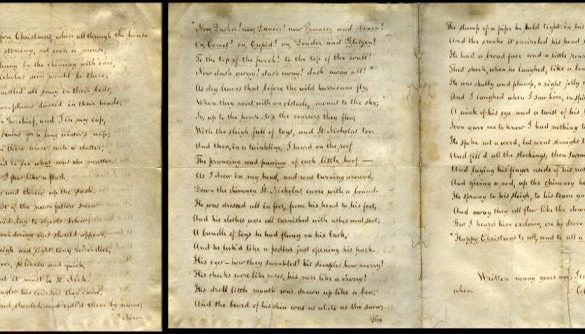 Christmas, when all through the house
stirring, not even a mouse;
hung by the chimney with care,
Nicholas soon would be there;
nestled all snug in their beds
plums danced in their heads;
kerchief, and I in my cap,
brains for a long winter's nap;
there arose such a clatter,
to see what was the matter.
I flew like a flash,
and threw up the sash.
of the new-fallen snow
mid-day to objects below;
eyes should appear,
sleigh and eight tiny reindeer,
driver, so lively and quick,
it must be St. Nick.
eagles his coursers they came,
and shouted, and call'd them by name;
"Now, Dasher! now, Dancer! now Prancer and Vixen!
On, Comet! on, Cupid! on, Donder and Blitzen!
To the top of the porch! to the top of the wall!
Now dash away! dash away! dash away all!"
As dry leaves that before the wild hurricane fly,
When they meet with an obstacle, mount to the sky;
So, up to the house-top the coursers they flew,
With the sleigh full of toys, and St. Nicholas too.
And then, in a twinkling, I heard on the roof
The prancing and pawing of each little hoof—
As I drew in my head, and was turning around,
Down the chimney St. Nicholas came with a bound.
He was dressed all in fur, from his head to his foot,
And his clothes were all tarnished with ashes and soot;
A bundle of toys he had flung on his back,
And he look'd like a pedlar just opening his pack.
His eyes—how they twinkled! his dimples how merry!
His cheeks were like roses, his nose like a cherry!
His droll little mouth was drawn up like a bow,
And the beard of his chin was as white as the snow;
The
The stump of a pipe he held tight in his
And the smoke it encircled his head
He had a broad face and a little round
That shook, when he laughed, like a bow
He was chubby and plump, a right jolly
And I laughed when I saw him, in spite
A wink of his eye and a twist of his
Soon gave me to know I had nothing
He spoke not a word, but went straight to
And fill'd all the stockings; then turned
And laying his finger aside of his nose
And giving a nod, up the chimney
He sprang to his sleigh, to his team gave
And away they all flew like the down
But I heard him exclaim, ere he drove
"Happy Christmas to all, and to all a
Written many years ago;